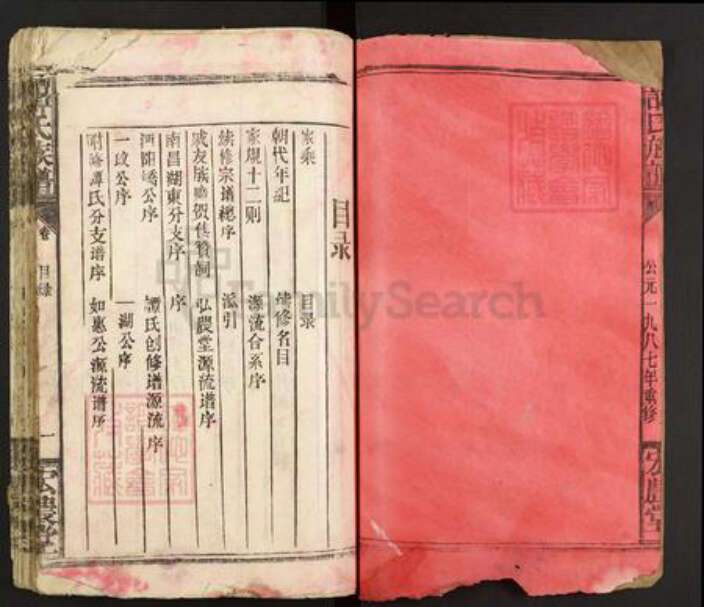 公元一九八七年重修
目录
家乘
目录
朝代年記
续修名目
家规十二则
源流合系序
续修宗谱總序
派引
戚友族 贺 赞詞
弘農堂源流谱序
南昌湖東分支序
序
泗阳 公序
譚氏创修谱源流序
一玟公序
一湖公序
附 譚氏分支谱序
如惠公源流谱序
氏族譜
卷
目録
一
宏農堂
FamilySearch